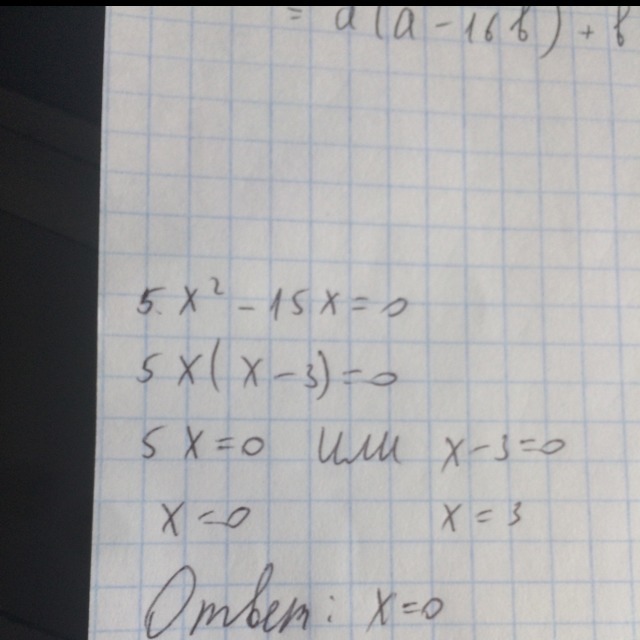 = a(a - 168) + 8
5x² - 15x = 0
5x(x - 3) = 0
5x = 0 или x - 3 = 0
x = 0 x = 3
Ответ: x = 0